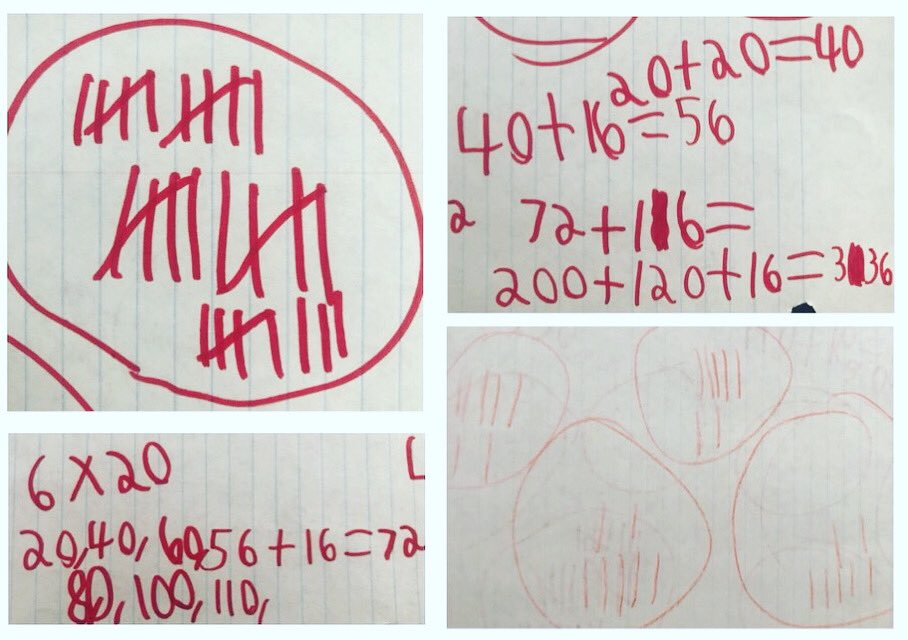 20+20=40
40+16=56
2 72+16=
200+120+16=336
6×20
20,40,60,56+16=72
80,100,110,